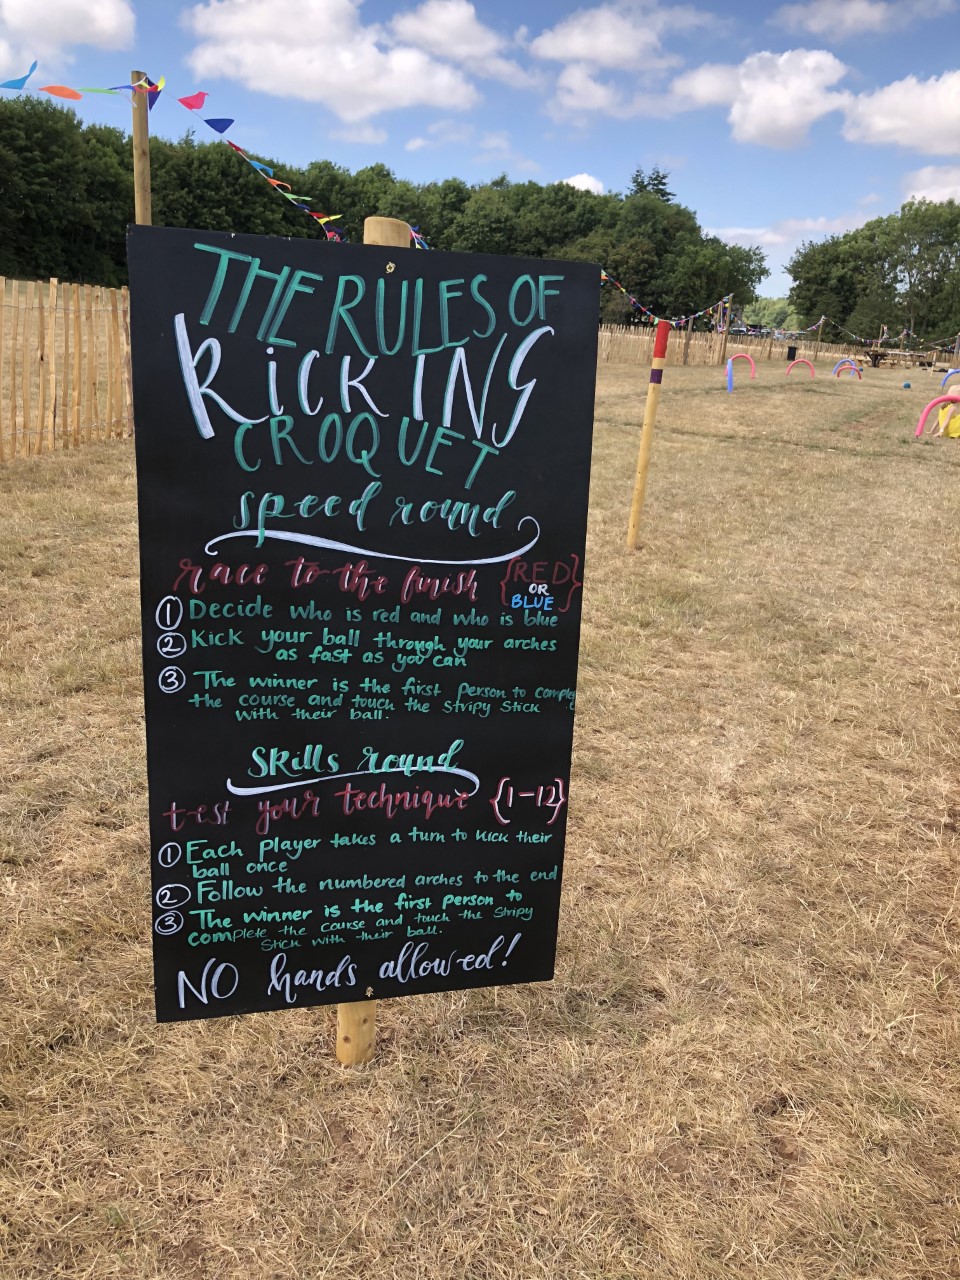 THE RULES OF
KiCKING
CROQUET
speed round
race to the finish {RED
OR
BLUE}
① Decide who is red and who is blue
② Kick your ball through your arches
as fast as you can
③ The winner is the first person to complete
the course and touch the Stripy Stick
with their ball.
Skills round
test your technique {1-12}
① Each player takes a turn to kick their
ball once
② Follow the numbered arches to the end
③ The winner is the first person to
complete the course and touch the Stripy
Stick with their ball.
NO hands allowed!